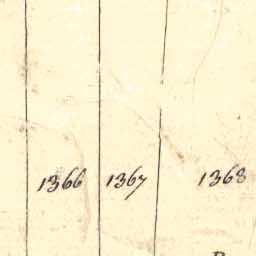 1366 1367 1368